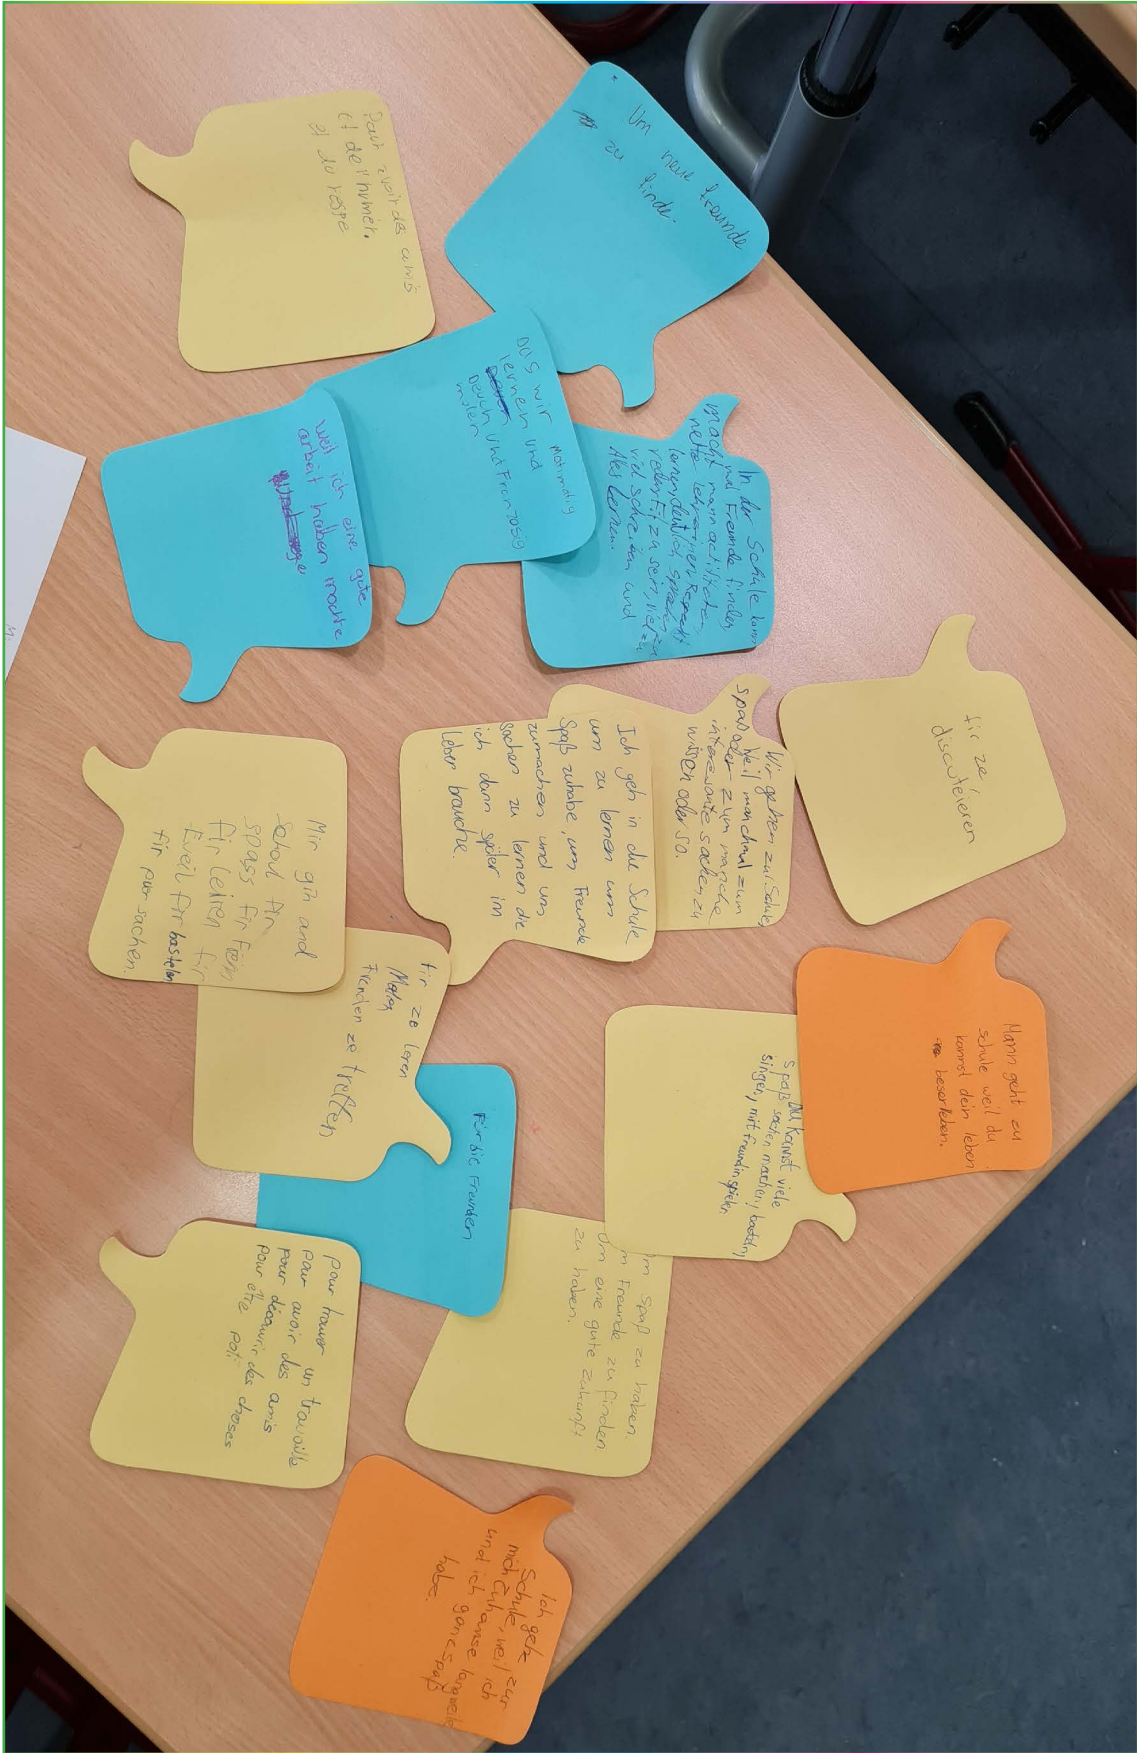 Um neue freunde
zu
finde.
avoir des amis
et de l'humer.
et du respe
Das wir Matimatig
lernen und
Deuch und Französig
malen
weil ich eine gute
arbeit haben mochte
In der Schule kann
mal Freunde finden,
macht mann activiteten
nette lehrerinnen Respeckt
lernen, deutlich sprechen
reden Fit zu sein, viel zu
viel schreiben und
Ales lernen.
fir ze
discutéieren
Wir gehen zur Schule,
Weil manchmal zum
spaß oder zum manche
interesante sachen zu
wissen oder so.
Ich geh in die Schule
um zu lernen um
Spaß zuhabe, um Freunde
zumachen und um
sachen zu lernen die
ich dann später im
leben brauche.
Mir gin and
Schoul fir
spass fir Frënn
fir leiren fir
Eveil fir bastelen
fir puer sachen.
Fir ze leren
Malen
Frenden ze treffen
Für die Freunden
Mann geht zu
schule weil du
kannst dein leben
beser leben.
Du kannst viele
spaß sachen machen, basteln,
singen, mit freundin spielen.
m spaß zu haben.
m Freunde zu finden.
Um eine gute zukunft
zu haben.
pour trouver un travaille
pour avoir des amis
pour découvrir des choses
pour être poli
Ich geh zur
Schule, weil ich
mich zuhause langweile
und ich ganz spaß
habe.